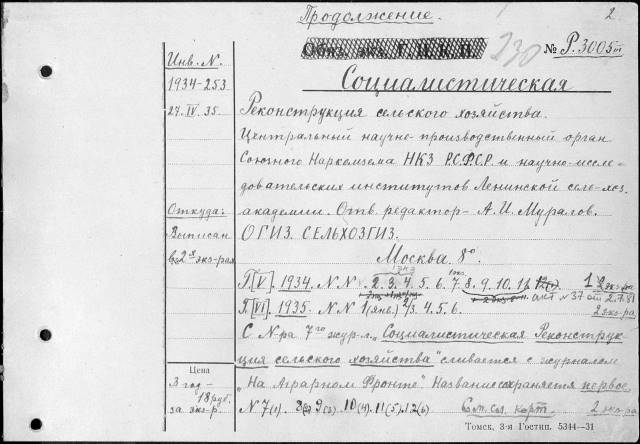 Продолжение. 2
Обяз. экз. Г.Ц.К.П. 230 № Р.3005т
Инв. N.
1934-253
27.IV.35.
Социалистическая
Реконструкция сельского хозяйства.
Центральный научно-производственный орган
Союзного Наркомзема НКЗ Р.С.Ф.С.Р. и научно-иссле-
довательских институтов Ленинской сельхоз.
академии. Отв. редактор - А.И. Муралов.
Откуда:
Выписан
в 2х экз-рах
ОГИЗ. СЕЛЬХОЗГИЗ.
Москва. 8°
Г.[V]. 1934. N.N. 2. 3. 4. 5. 6. 7. 8. 9. 10. 11. 12 1 2 экз-ра
акт №37 от 2.7.81
Г.[VI]. 1935. N.N 1(янв.) 2/3. 4. 5. 6. 2 экз-ра
С N-ра 7го жур-л „Социалистическая Реконструк-
ция сельского хозяйства" сливается с журналом
„На Аграрном Фронте". Название сохраняется первое.
Цена
З год-
18 руб.
за экз-р.
N 7(1). 8(2) 9(3) 10(4) 11(5) 12(6) карт. 2 экз-ра
Томск, 3-я Гостип. 5344-31